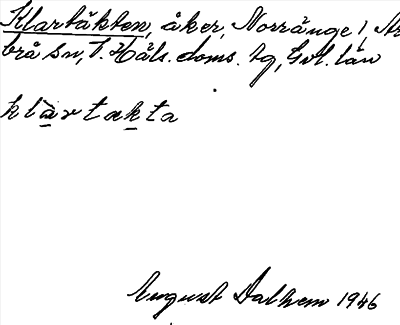 Klartäkten, åker, Norränge 1, Ar
brå sn, V. Häls. doms. tg, Gvl. län
klàrtakta
August Dalhem 1946